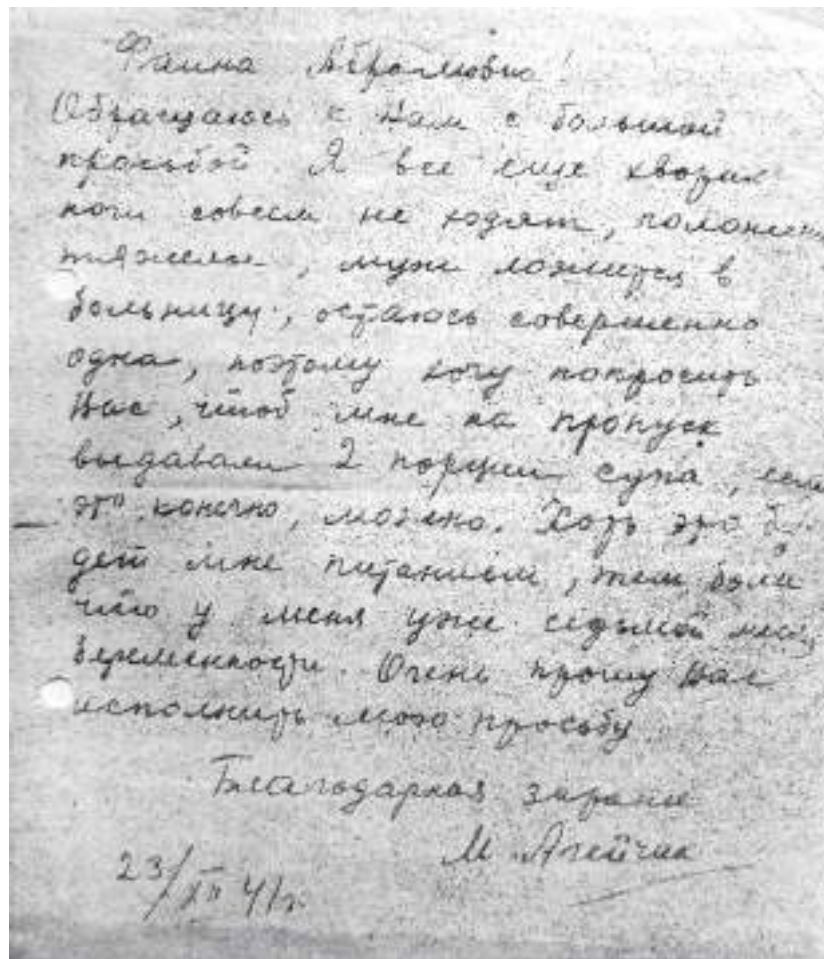 Фаина Абрамовна!
Обращаюсь к Вам с большой
просьбой. Я все еще хвораю
ноги совсем не ходят, положение
тяжелое, муж ложится в
больницу, остаюсь совершенно
одна, поэтому хочу попросить
Вас, чтоб мне на пропуск
выдавали 2 порции супа, если
это, конечно, можно. Хоть это бу-
дет мне питанием, тем боле
что у меня уже седьмой месяц
беременности. Очень прошу Вас
исполнить мою просьбу
Благодарная заране
М. Агейчик
23/XII 41г.